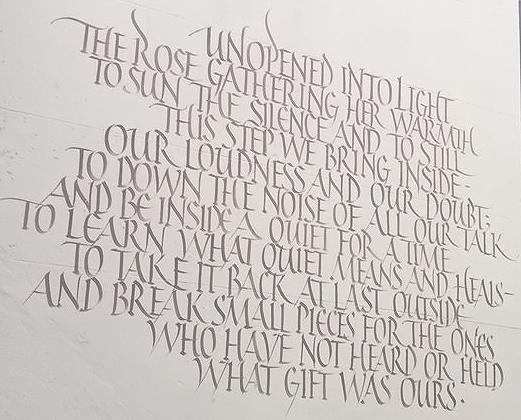 UNOPENED INTO LIGHT
THE ROSE GATHERING HER WARMTH
TO SUN THE SILENCE AND TO STILL
THIS STEP WE BRING INSIDE-
OUR LOUDNESS AND OUR DOUBT;
TO DOWN THE NOISE OF ALL OUR TALK
AND BE INSIDE A QUIET FOR A TIME
TO LEARN WHAT QUIET MEANS AND HEALS-
TO TAKE IT BACK AT LAST OUTSIDE
AND BREAK SMALL PIECES FOR THE ONES
WHO HAVE NOT HEARD OR HELD
WHAT GIFT WAS OURS.